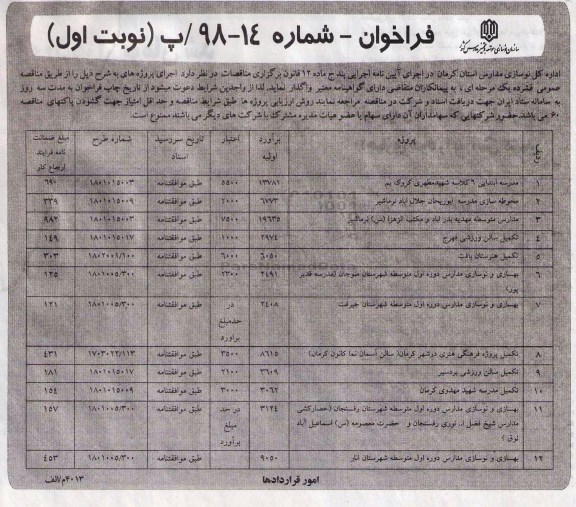 سازمان نوسازی، توسعه و تجهیز مدارس کشور
فراخوان - شماره ۱۴-۹۸/پ (نوبت اول)
اداره کل نوسازی مدارس استان کرمان در اجرای آیین نامه اجرایی بند ج ماده ۱۲ قانون برگزاری مناقصات در نظر دارد اجرای پروژه های به شرح ذیل را از طریق مناقصه
عمومی فشرده یک مرحله ای، به پیمانکاران متقاضی دارای گواهینامه معتبر واگذار نماید. لذا از واجدین شرایط دعوت میشود از تاریخ چاپ فراخوان به مدت سه روز
به سامانه ستاد ایران جهت دریافت اسناد و شرکت در مناقصه مراجعه نمایند روش ارزیابی پروژه ها طبق شرایط مناقصه و حد اقل امتیاز جهت گشودن پاکتهای مناقصه
۶۰ می باشد. حضور شرکتهایی که سهامداران آن دارای سهام یا عضو هیات مدیره مشترک با شرکت های دیگر می باشند ممنوع است.
ردیف پروژه برآورد اولیه اعتبار تاریخ سررسید اسناد شماره طرح مبلغ ضمانت نامه فرایند ارجاع کار
۱ مدرسه ابتدایی ۹ کلاسه شهیدمطهری کروک بم ۱۳۷۸۱ ۵۵۰۰ طبق موافقتنامه ۱۸۰۱۰۱۵۰۰۳ ۶۹۰
۲ محوطه سازی مدرسه ابوریحان جلال آباد نرماشیر ۶۷۷۳ ۲۰۰۰ طبق موافقتنامه ۱۸۰۱۰۱۵۰۰۹ ۳۳۹
۳ مدارس متوسطه مهدیه بدر آباد و مکتب الزهرا (س) نرماشیر ۱۹۶۳۵ ۷۵۰۰ طبق موافقتنامه ۱۸۰۱۰۱۵۰۰۳ ۹۸۲
۴ تکمیل سالن ورزشی فهرج ۲۹۷۴ ۱۰۰۰ طبق موافقتنامه ۱۸۰۱۰۱۵۰۱۷ ۱۴۹
۵ تکمیل هنرستان بافت ۶۰۵۰ ۶۰۰۰ طبق موافقتنامه ۱۸۰۲۰۰۱/۱۰۰ ۳۰۳
۶ بهسازی و نوسازی مدارس دوره اول متوسطه شهرستان منوجان (مدرسه قدیر پور) ۲۴۹۱ ۲۳۰۰ طبق موافقتنامه ۱۸۰۱۰۰۵/۳۰۰ ۱۲۵
۷ بهسازی و نوسازی مدارس دوره اول متوسطه شهرستان جیرفت ۲۴۰۸ در حدمبلغ برآورد طبق موافقتنامه ۱۸۰۱۰۰۵/۳۰۰ ۱۲۱
۸ تکمیل پروژه فرهنگی هنری درشهر کرمان( سالن آسمان نما کانون کرمان) ۸۶۱۵ ۳۵۰۰ طبق موافقتنامه ۱۷۰۳۰۲۲/۱۱۳ ۴۳۱
۹ تکمیل سالن ورزشی بردسیر ۳۶۰۹ ۲۱۰۰ طبق موافقتنامه ۱۸۰۱۰۱۵۰۱۷ ۱۸۱
۱۰ تکمیل مدرسه شهید مهدوی کرمان ۳۰۶۲ ۳۰۰۰ طبق موافقتنامه ۱۸۰۱۰۱۵۰۰۹ ۱۵۴
۱۱ بهسازی و نوسازی مدارس دوره اول متوسطه شهرستان رفسنجان (حصارکشی مدارس شیخ فضل ا.. نوری رفسنجان و حضرت معصومه (س) اسماعیل آباد نوق) ۳۱۲۴ در حد مبلغ برآورد طبق موافقتنامه ۱۸۰۱۰۰۵/۳۰۰ ۱۵۷
۱۲ بهسازی و نوسازی مدارس دوره اول متوسطه شهرستان انار ۹۰۵۰ طبق موافقتنامه ۱۸۰۱۰۰۵/۳۰۰ ۴۵۳
امور قراردادها
۴۰۱۳/م/الف